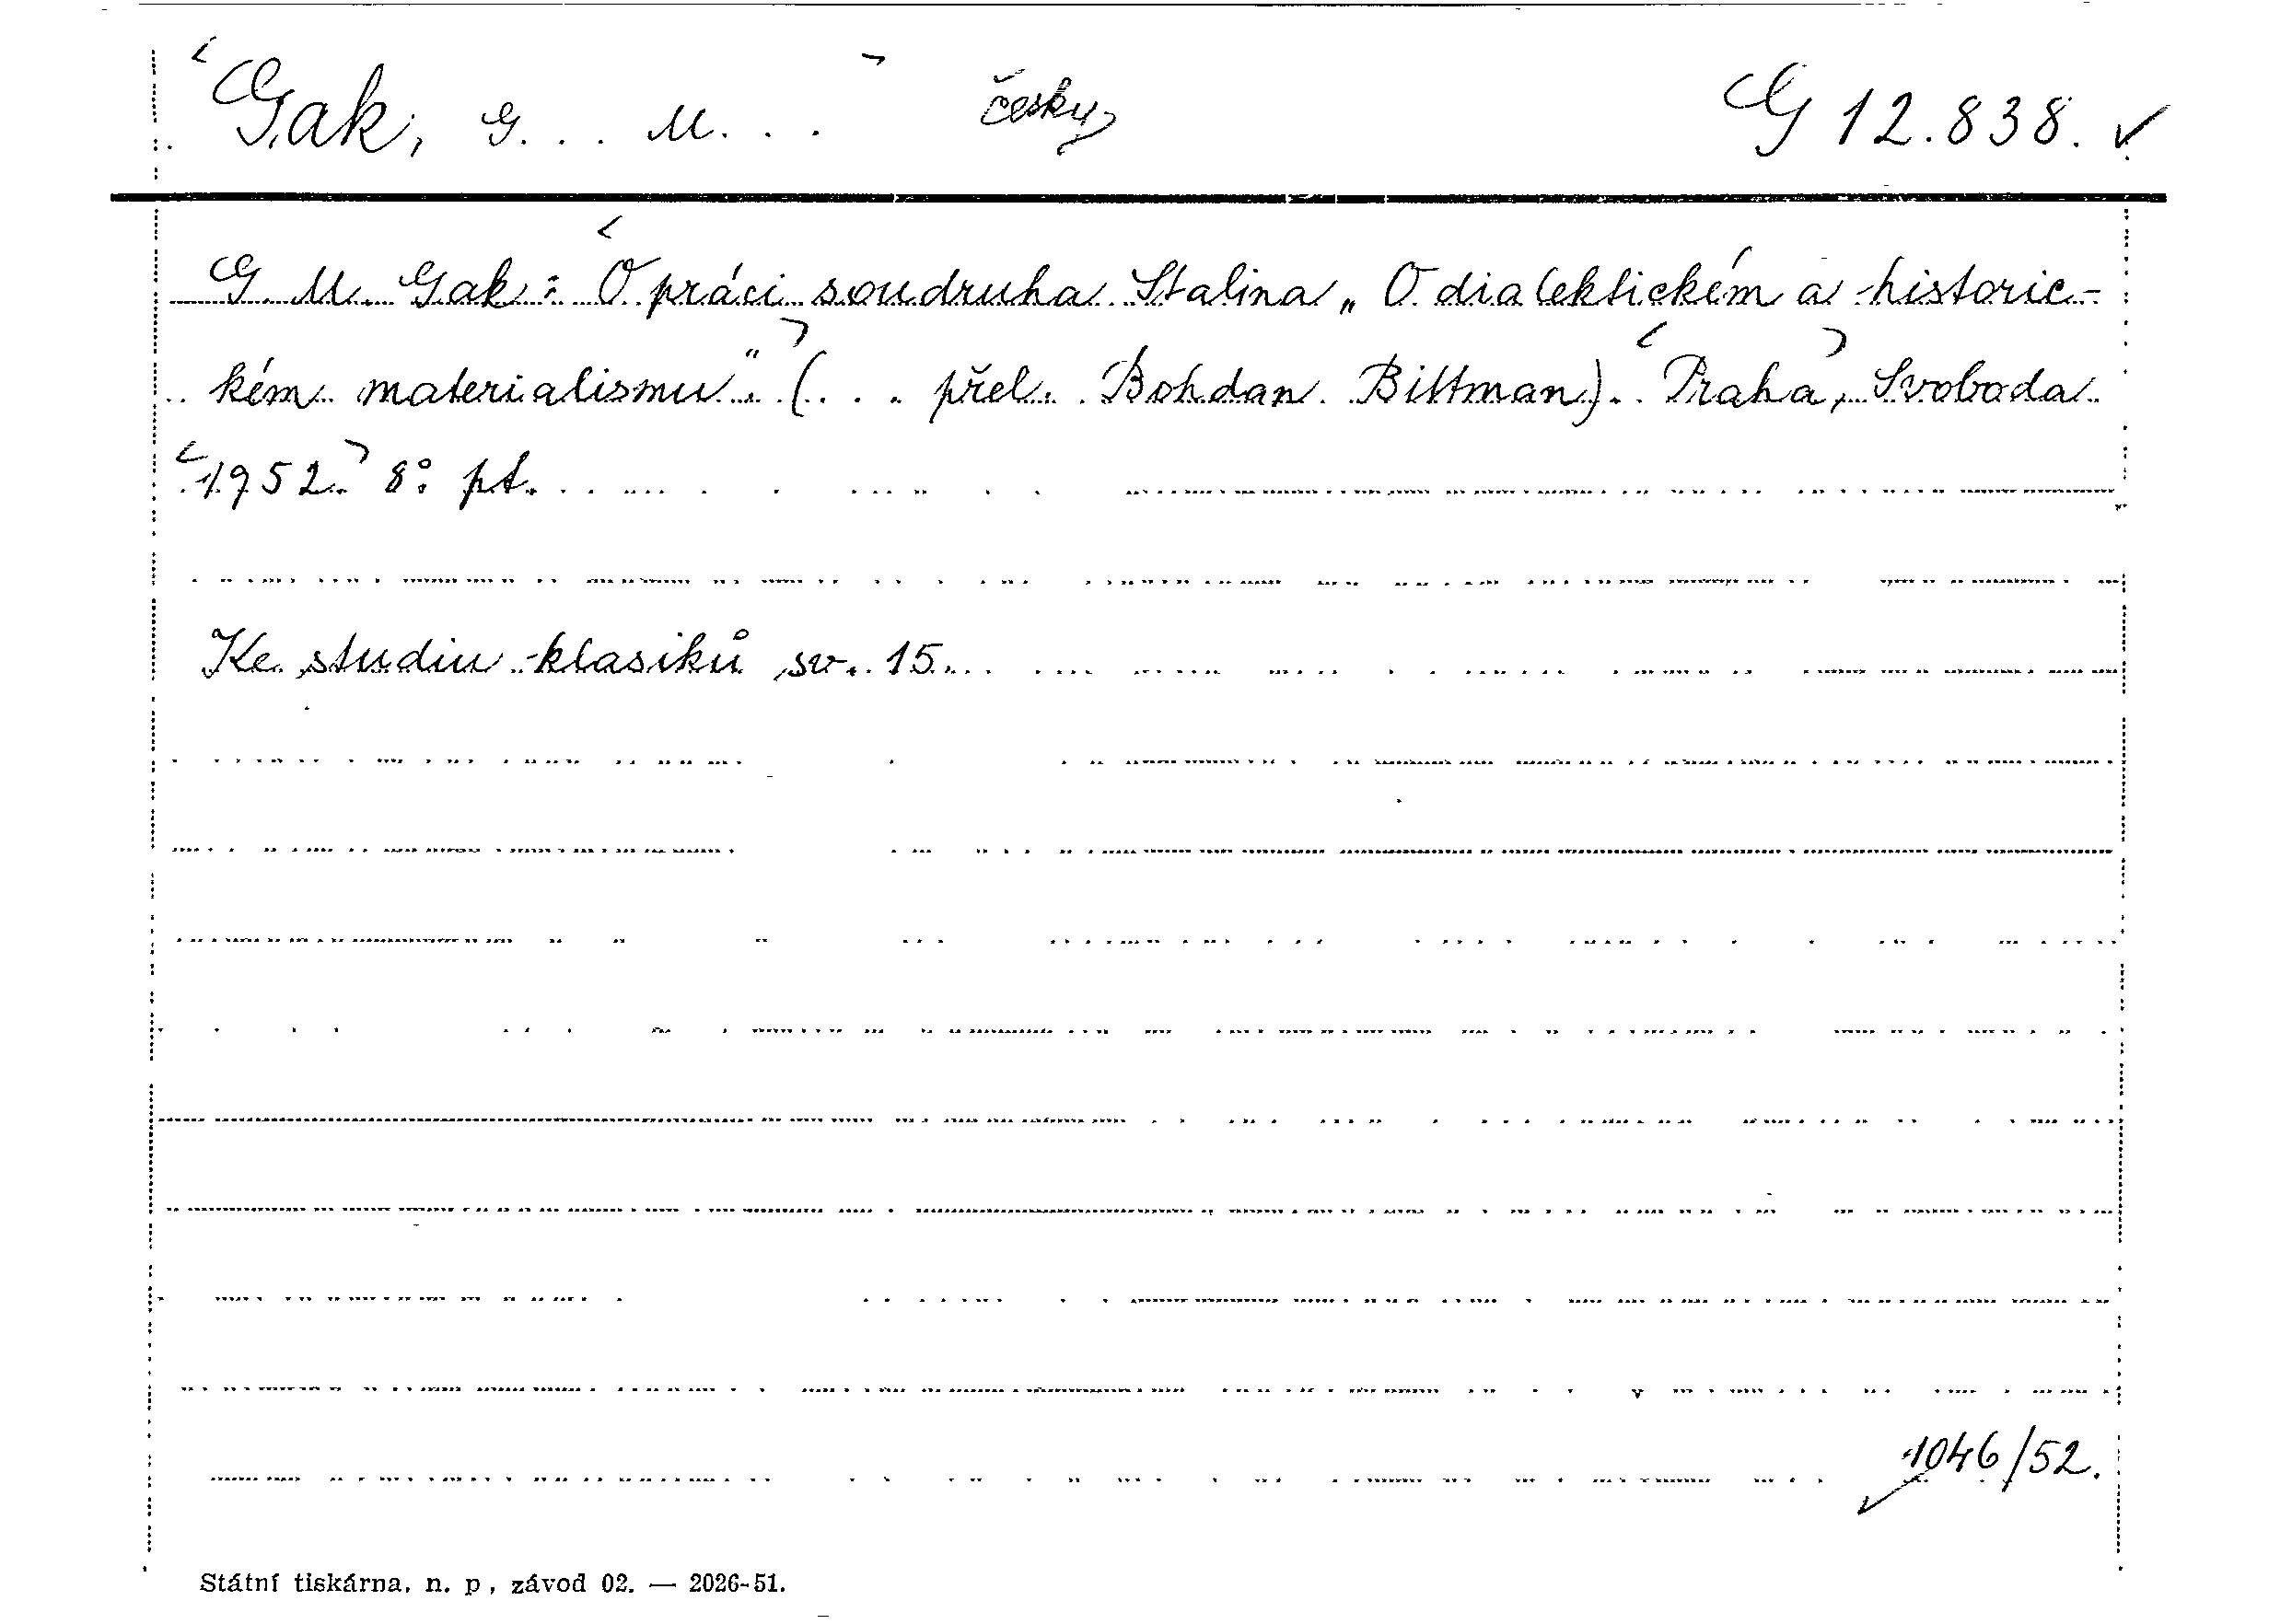 Gak, G... M...   česky   G 12.838.
G. M. Gak: O práci soudruha Stalina „O dialektickém a historic-
kém materialismu". (... přel. Bohdan Bittman). Praha, Svoboda
1952. 8° pt.
Ke studiu klasiků sv. 15.
1046/52.
Státní tiskárna, n. p., závod 02. — 2026-51.